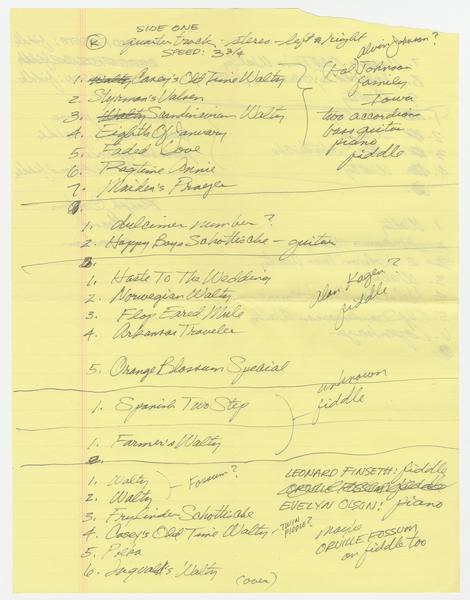 SIDE ONE
(R) quarter track - stereo - left & right
SPEED: 3 3/4
alvin Johnson?
1. Casey's Old Time Waltz
(Hal) Johnson
family
2. Styrman's Valsen
Iowa
3. Scandinavian Waltz
two accordions
4. Eighth Of January
bass guitar
5. Faded Love
piano
fiddle
6. Ragtime Annie
7. Maiden's Prayer
1. dulcimer number?
2. Happy Boys Schottische - guitar
1. Haste To The Wedding
2. Norwegian Waltz
Alan Kagen?
fiddle
3. Flop Eared Mule
4. Arkansas Traveler
5. Orange Blossom Special
unknown
fiddle
1. Spanish Two Step
1. Farmer's Waltz
1. Waltz
2. Waltz
Fossum?
LEONARD FINSETH: fiddle
ORVILLE FOSSUM fiddle
EVELYN OLSON: piano
3. Schottische
4. Casey's Old Time Waltz - TWIN FIDDLE?
maybe
ORVILLE FOSSUM
on fiddle too
5. Polka
6. Ingvald's Waltz
(over)